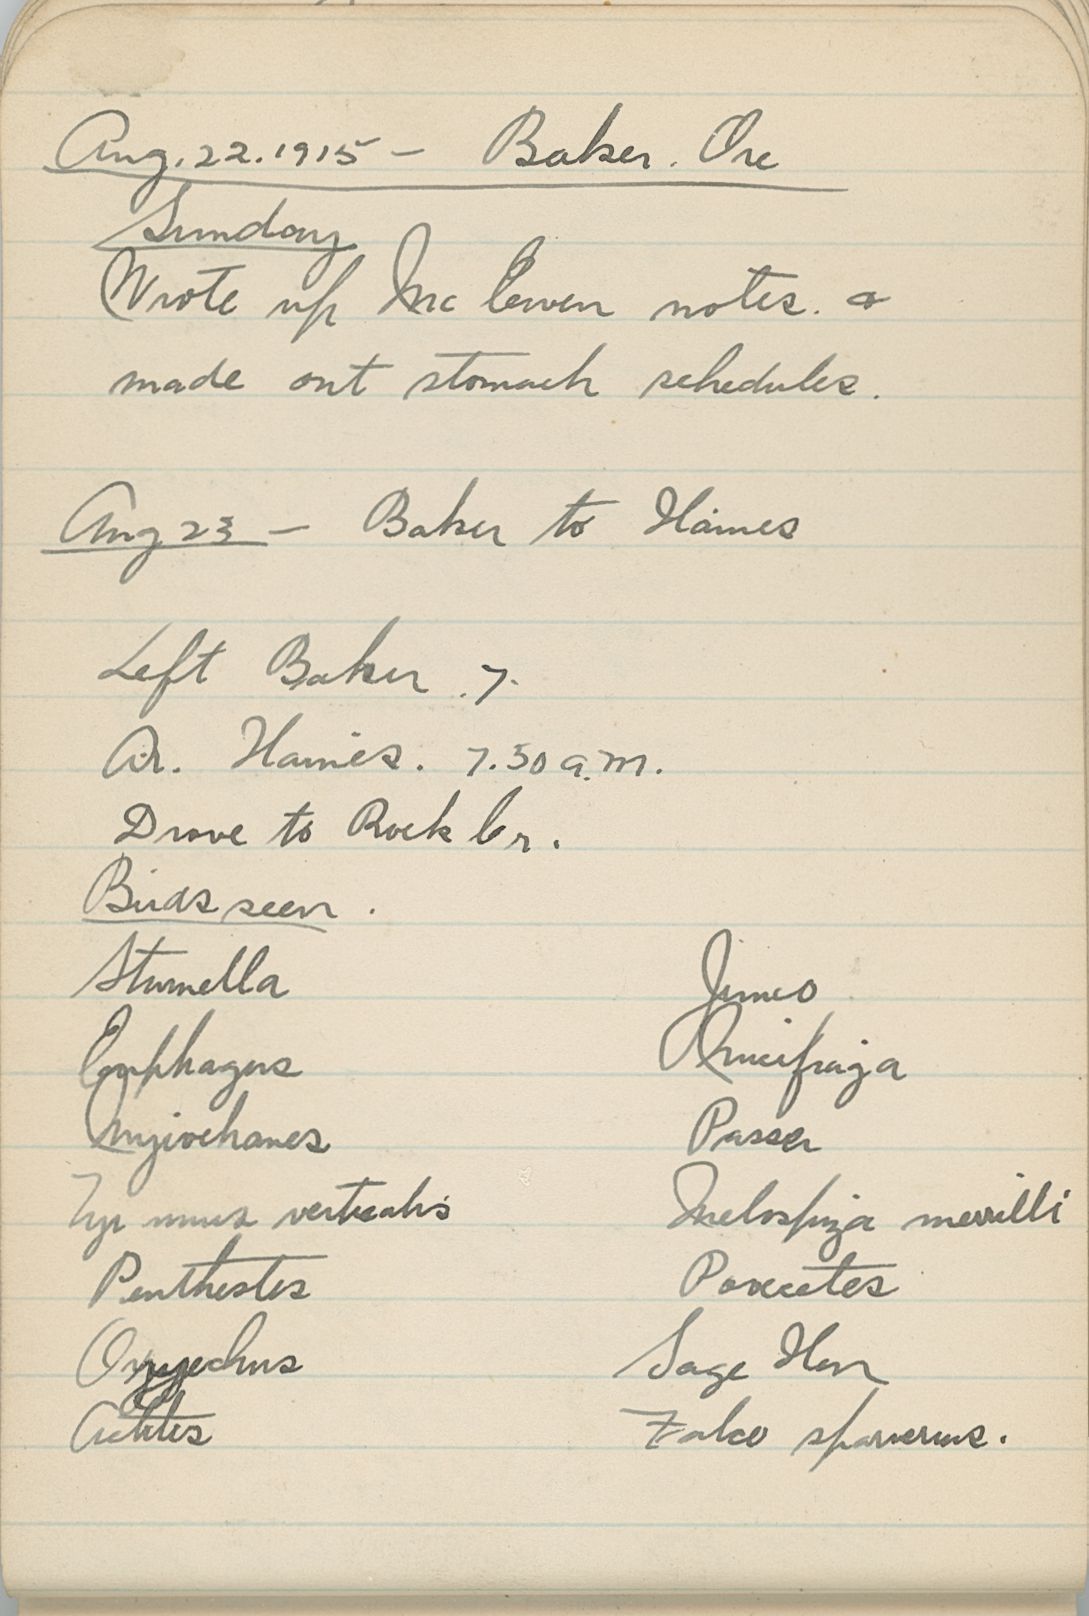 Aug. 22. 1915 – Baker. Ore
Sunday
Wrote up McEwen notes. &
made out stomach schedules.
Aug 23 – Baker to Haines
Left Baker . 7.
Ar. Haines. 7.50 a.m.
Drove to Rock Cr.
Birds seen.
Sturnella
Euphagus
Myiochanes
Tyrannus verticalis
Penthestes
Oxyechus
Actitis
Junco
Nucifraga
Passer
Melospiza merrilli
Pooecetes
Sage Hen
Falco sparverius.